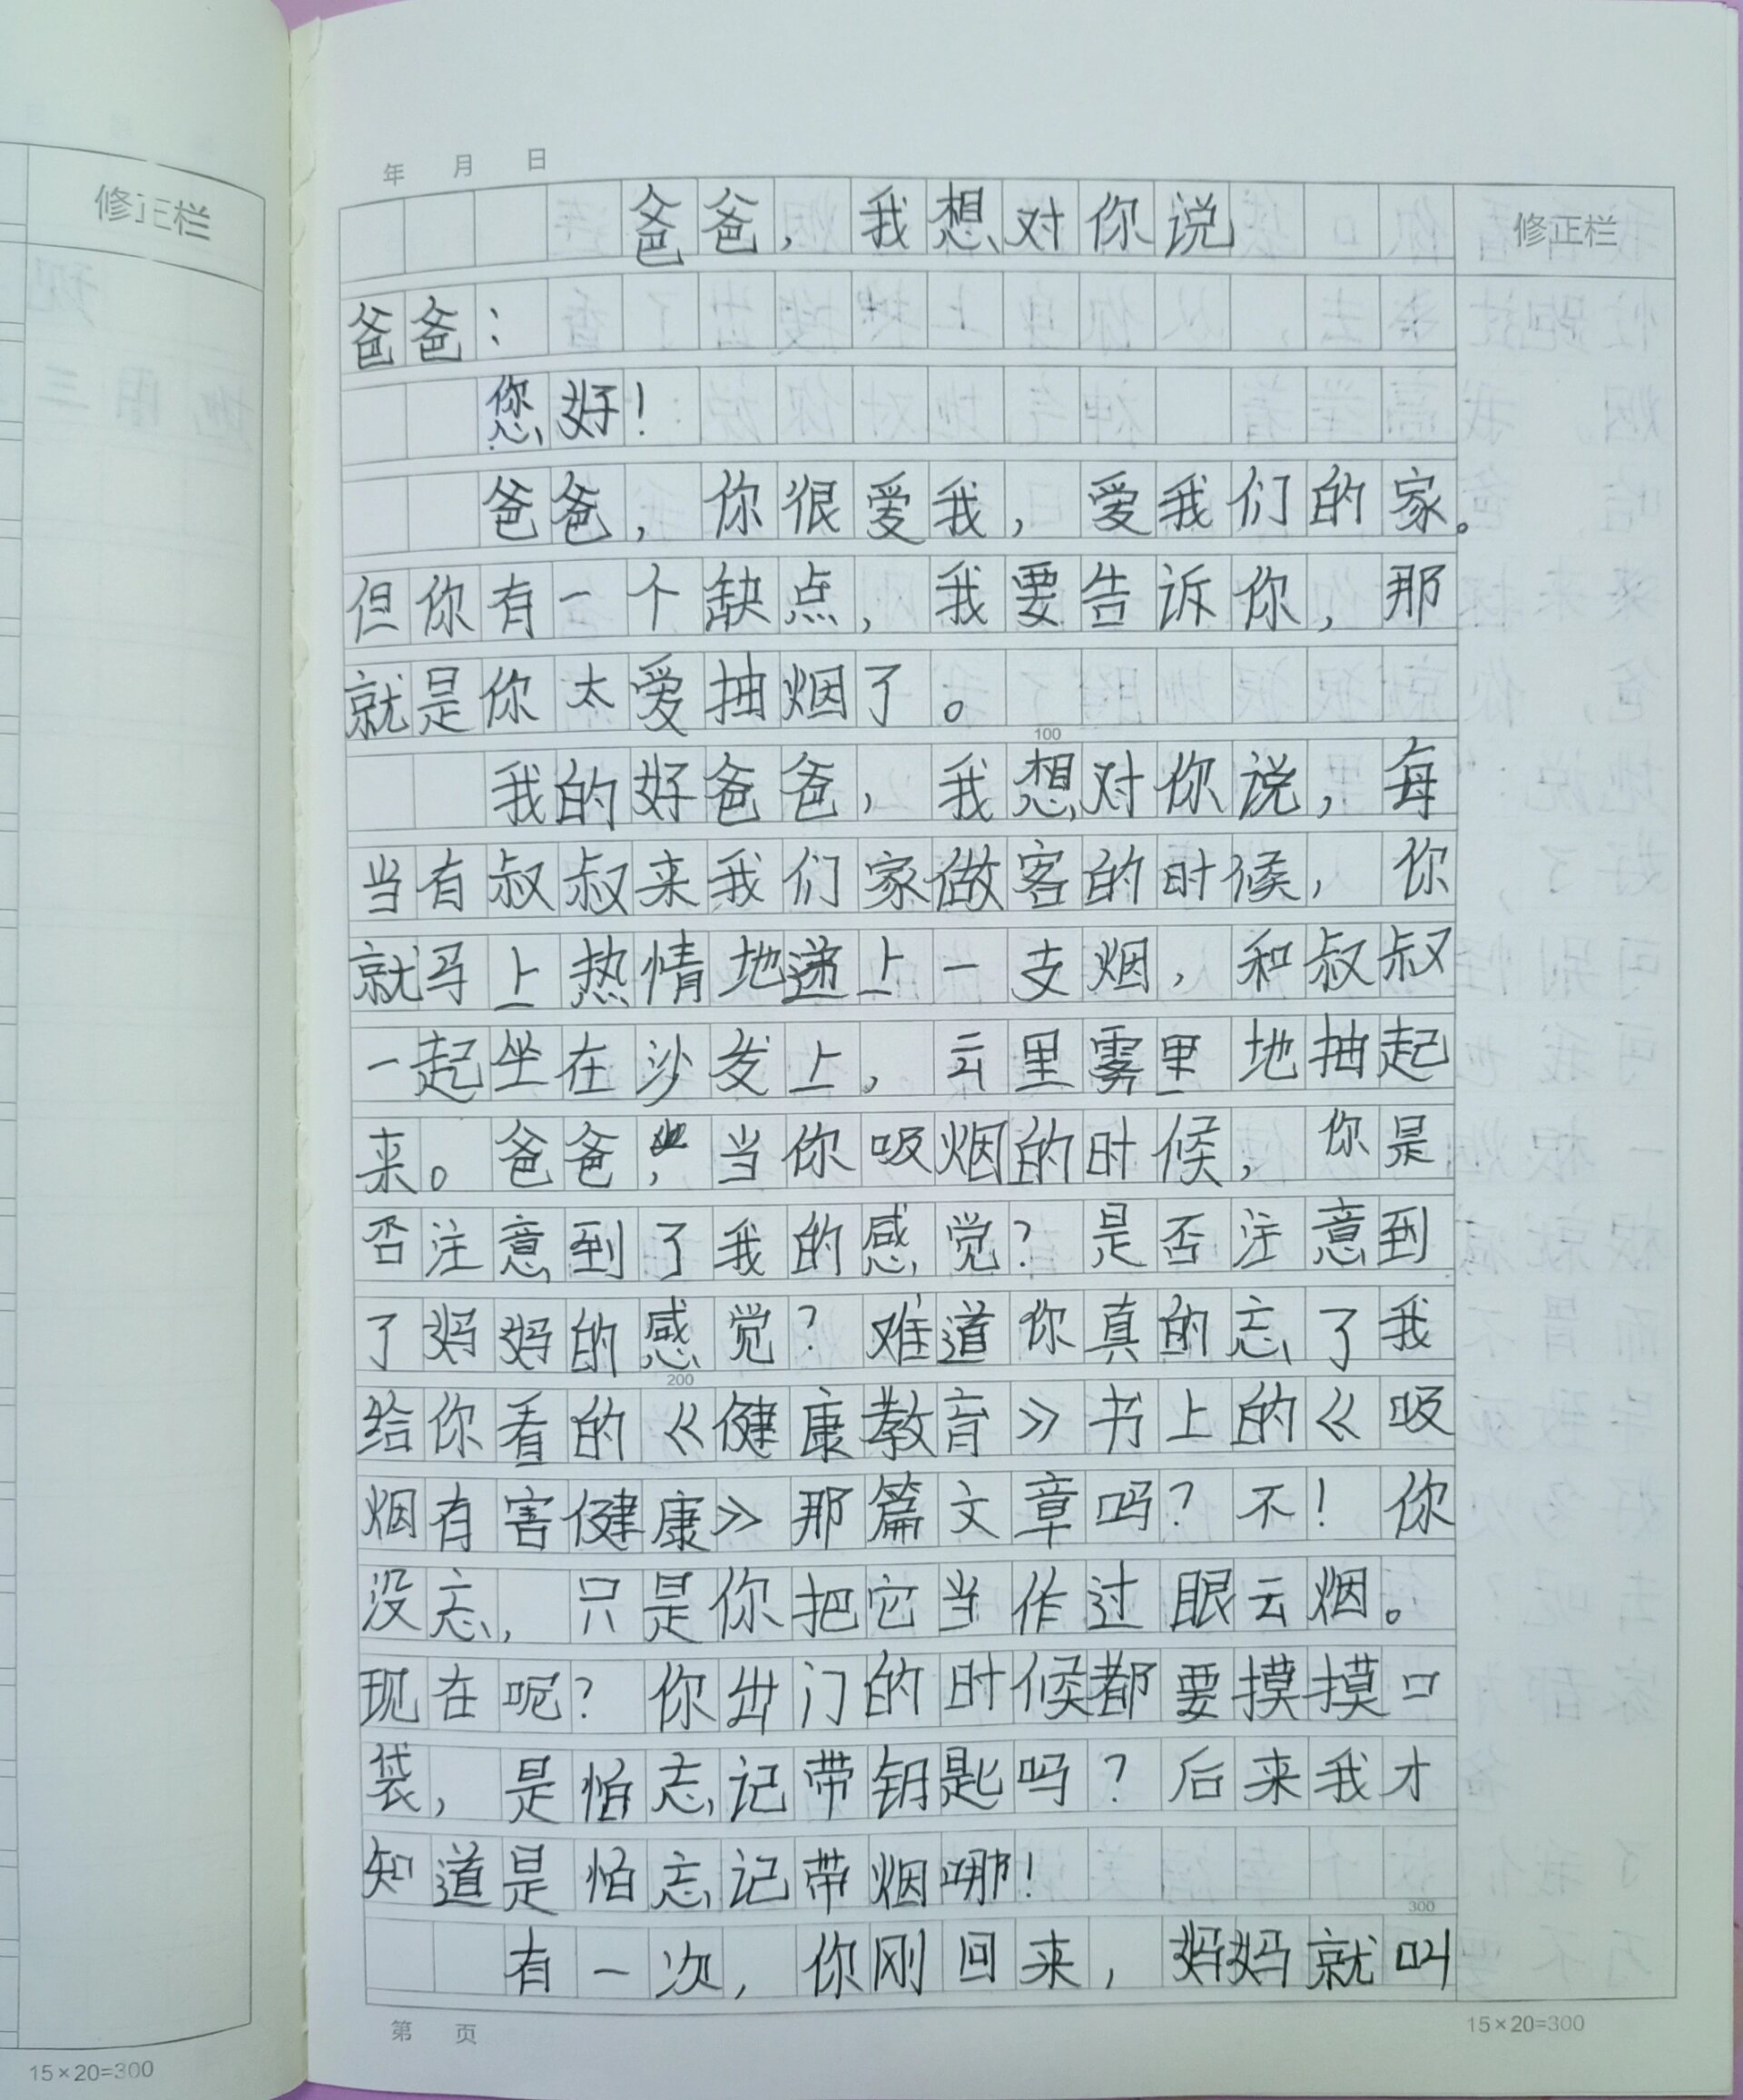 修正栏
15×20=300
年 月 日
爸爸，我想对你说
修正栏
爸爸：
您好！
爸爸，你很爱我，爱我们的家。
但你有一个缺点，我要告诉你，那
就是你太爱抽烟了。
100
我的好爸爸，我想对你说，每
当有叔叔来我们家做客的时候，你
就马上热情地递上一支烟，和叔叔
一起坐在沙发上，云里雾里地抽起
来。爸爸，当你吸烟的时候，你是
否注意到了我的感觉？是否注意到
了妈妈的感觉？难道你真的忘了我
200
给你看的《健康教育》书上的《吸
烟有害健康》那篇文章吗？不！你
没忘，只是你把它当作过眼云烟。
现在呢？你出门的时候都要摸摸口
袋，是怕忘记带钥匙吗？后来我才
知道是怕忘记带烟哪！
300
有一次，你刚回来，妈妈就叫
第 页
15×20=300